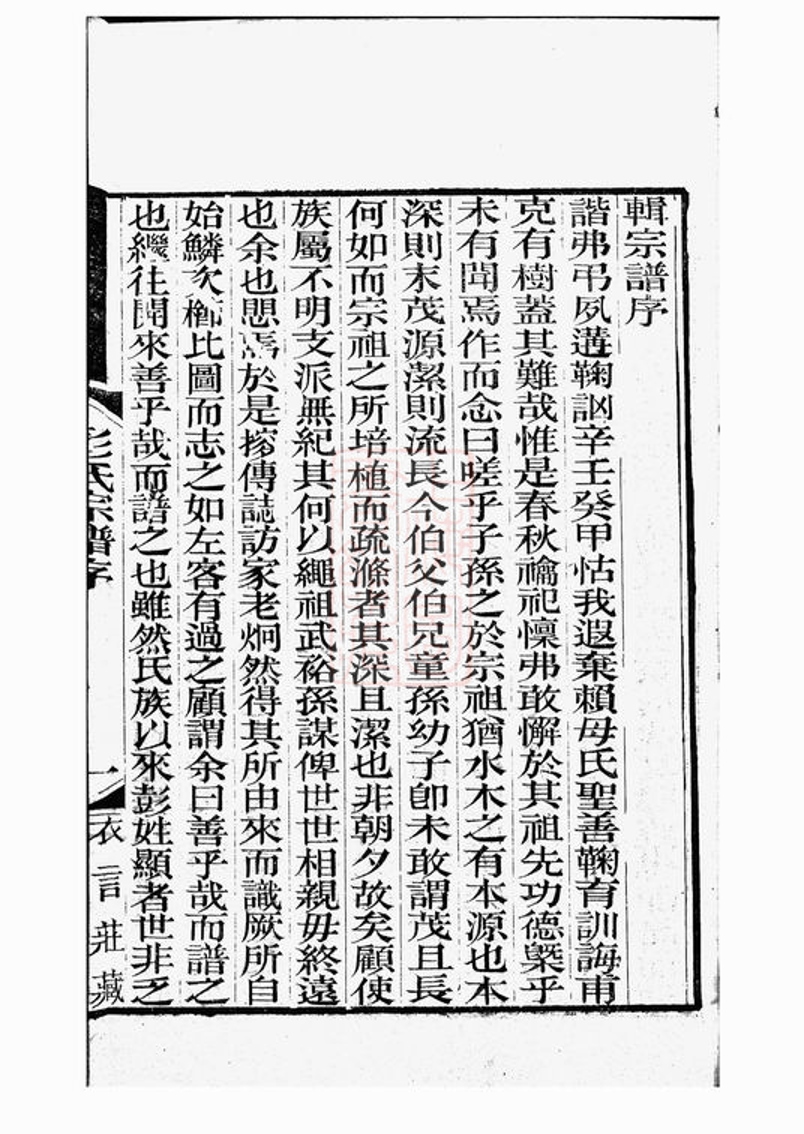 輯宗譜序
諧弗弔夙遘鞠訩辛壬癸甲怙我遐棄賴母氏聖善鞠育訓誨甫
克有樹蓋其難哉惟是春秋禴祀懍弗敢懈於其祖先功德槩乎
未有聞焉作而念曰嗟乎子孫之於宗祖猶水木之有本源也本
深則末茂源潔則流長今伯父伯兄童孫幼子卽未敢謂茂且長
何如而宗祖之所培植而疏滌者其深且潔也非朝夕故矣顧使
族屬不明支派無紀其何以繩祖武裕孫謀俾世世相親毋終遠
也余也愳焉於是摉傳誌訪家老炯然得其所由來而識厥所自
始鱗次櫛比圖而志之如左客有過之顧謂余曰善乎哉而譜之
也繼往開來善乎哉而譜之也雖然氏族以來彭姓顯者世非乏
彭氏宗譜序
一
衣言莊藏